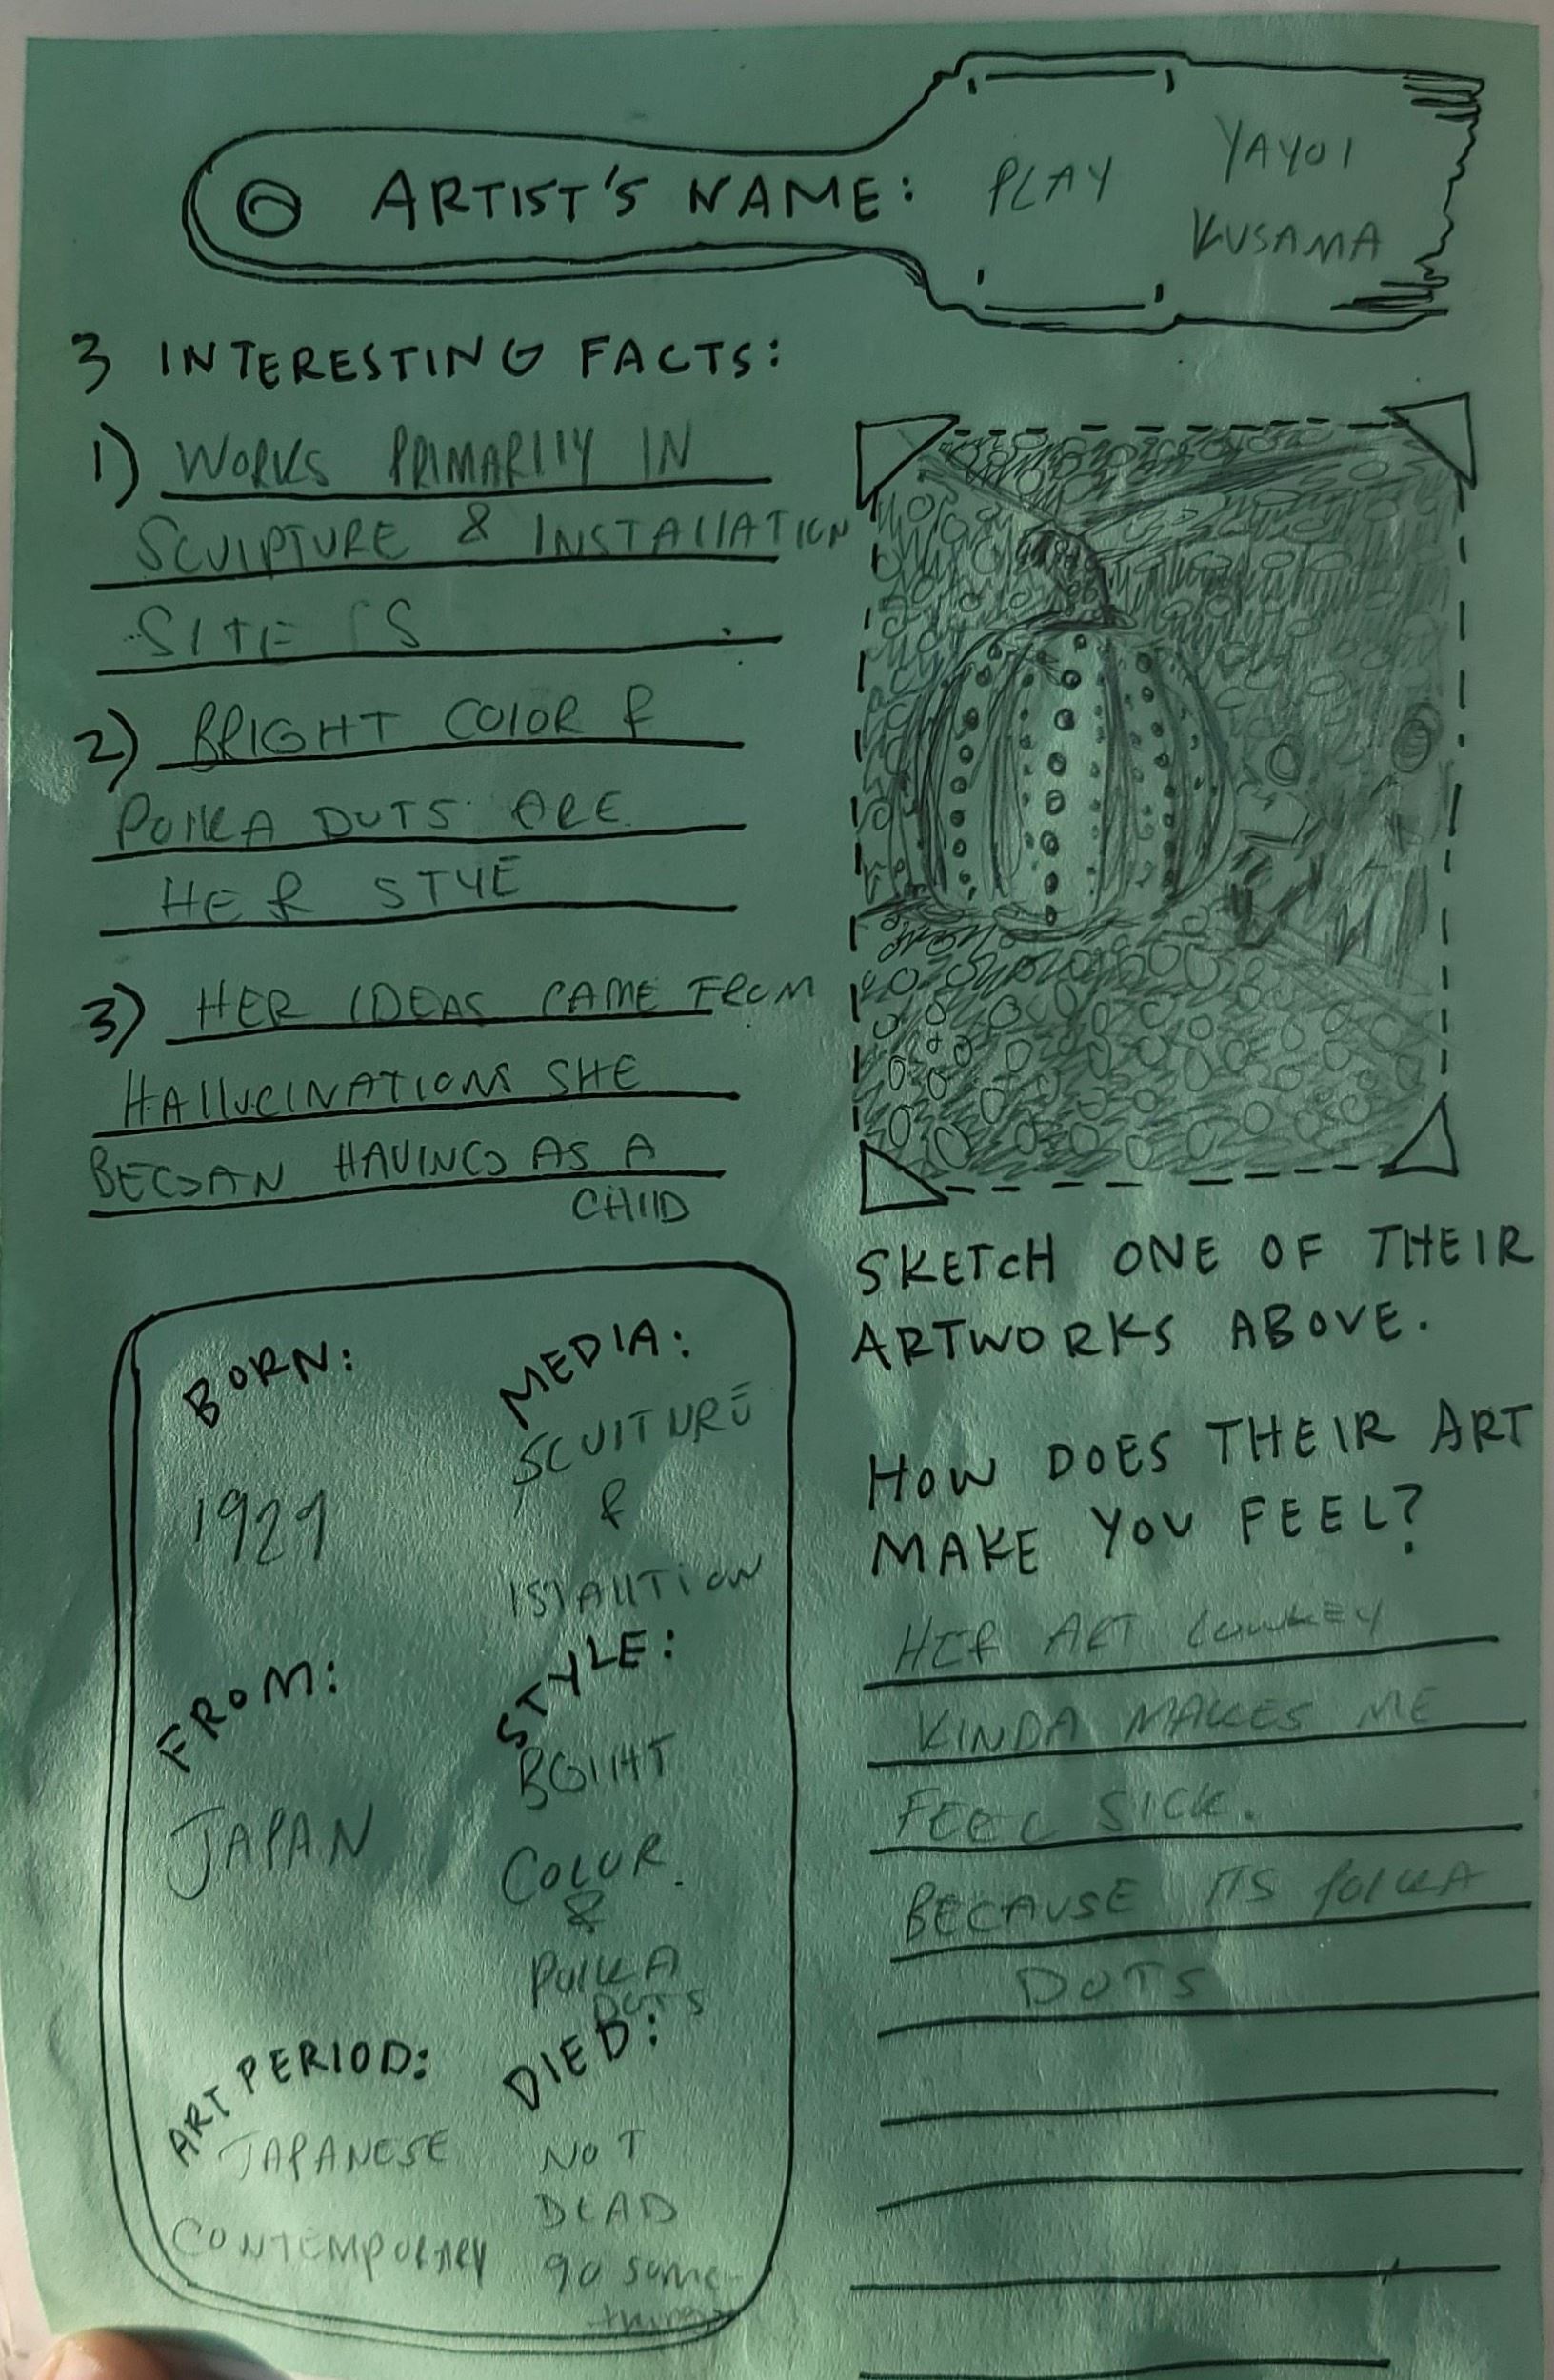 ARTIST'S NAME: PLAY YAYOI
KUSAMA
3 INTERESTING FACTS:
1) WORKS PRIMARILY IN
SCULPTURE & INSTALLATION
SITE
2) BRIGHT COLOR &
POLKA DOTS ARE
HER STYE
3) HER IDEAS CAME FROM
HALLUCINATIONS SHE
BEGAN HAVING AS A
CHILD
SKETCH ONE OF THEIR
ARTWORKS ABOVE.
BORN:
1929
FROM:
JAPAN
ART PERIOD:
JAPANESE
CONTEMPORARY
MEDIA:
SCULTURE
&
ISTALLTION
STYLE:
BGIHT
COLOR
&
POLKA
DOTS
DIED:
NOT
DEAD
90 some-
things
HOW DOES THEIR ART
MAKE YOU FEEL?
HER ART lowkey
KINDA MAKES ME
FEEL SICK.
BECAUSE ITS POLKA
DOTS